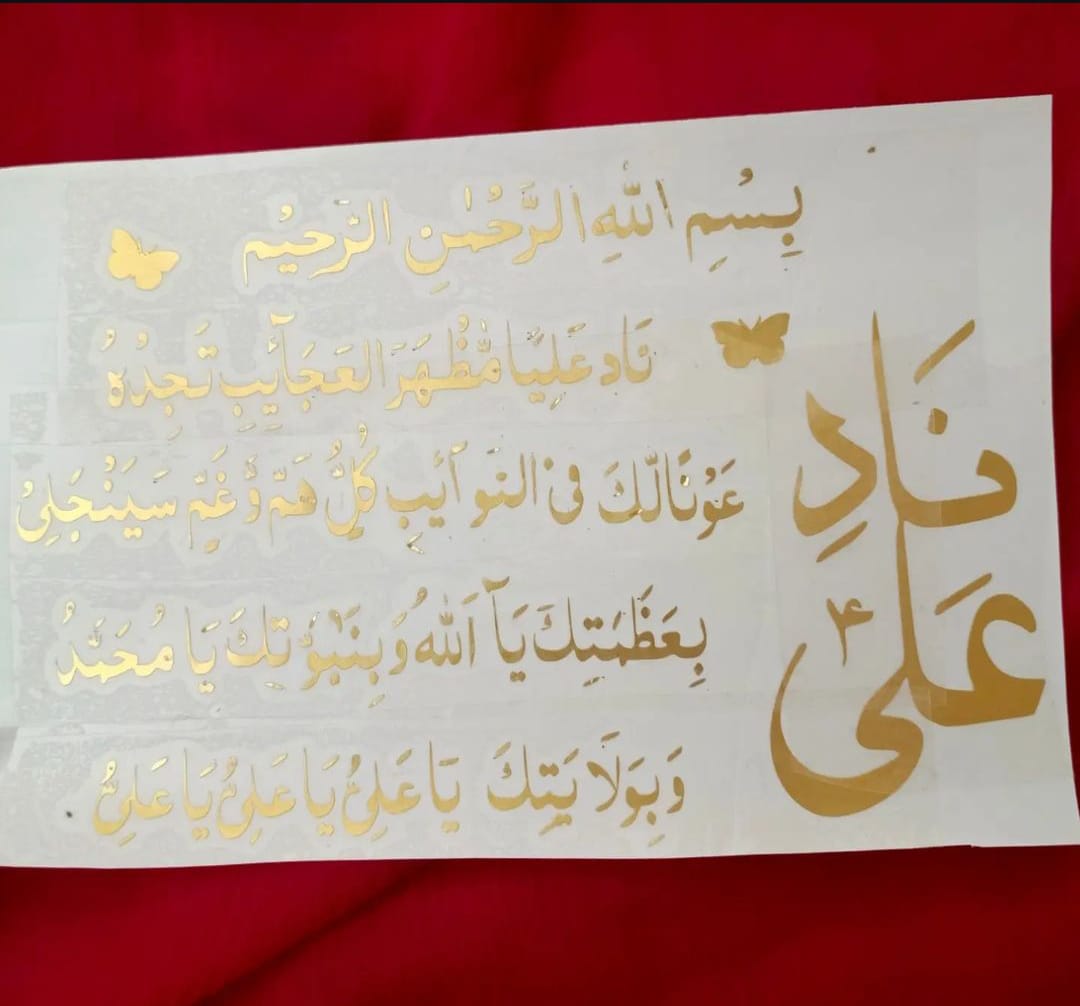 بِسْمِ اللهِ الرَّحْمٰنِ الرَّحِيْمِ
نَادِ عَلِيًّا مَّظْهَرَ الْعَجَآئِبِ تَجِدْهُ
عَوْنًا لَّكَ فِی النَّوَآئِبِ كُلُّ هَمٍّ وَّغَمٍّ سَيَنْجَلِیْ
بِعَظَمَتِكَ يَآ اَللهُ وَبِنَبُوَّتِكَ يَا مُحَمَّدُ
وَبِوَلَايَتِكَ يَا عَلِیُّ يَا عَلِیُّ يَا عَلِیُّ
نَادِ
عَلی